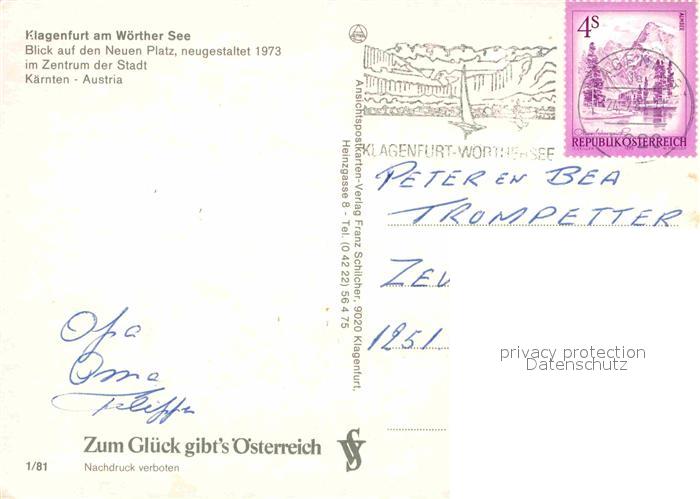 Klagenfurt am Wörther See
Blick auf den Neuen Platz, neugestaltet 1973
im Zentrum der Stadt
Kärnten - Austria
Opa
Oma
Zum Glück gibt's Österreich
1/81 Nachdruck verboten
Ansichtspostkarten-Verlag Franz Schilcher, 9020 Klagenfurt,
Heinzgasse 8 - Tel. (0 42 22) 56 4 75
KLAGENFURT-WÖRTHERSEE
4 S
ALMSEE
REPUBLIK ÖSTERREICH
PETER EN BEA
TROMPETTER
ZEV
1251
privacy protection
Datenschutz